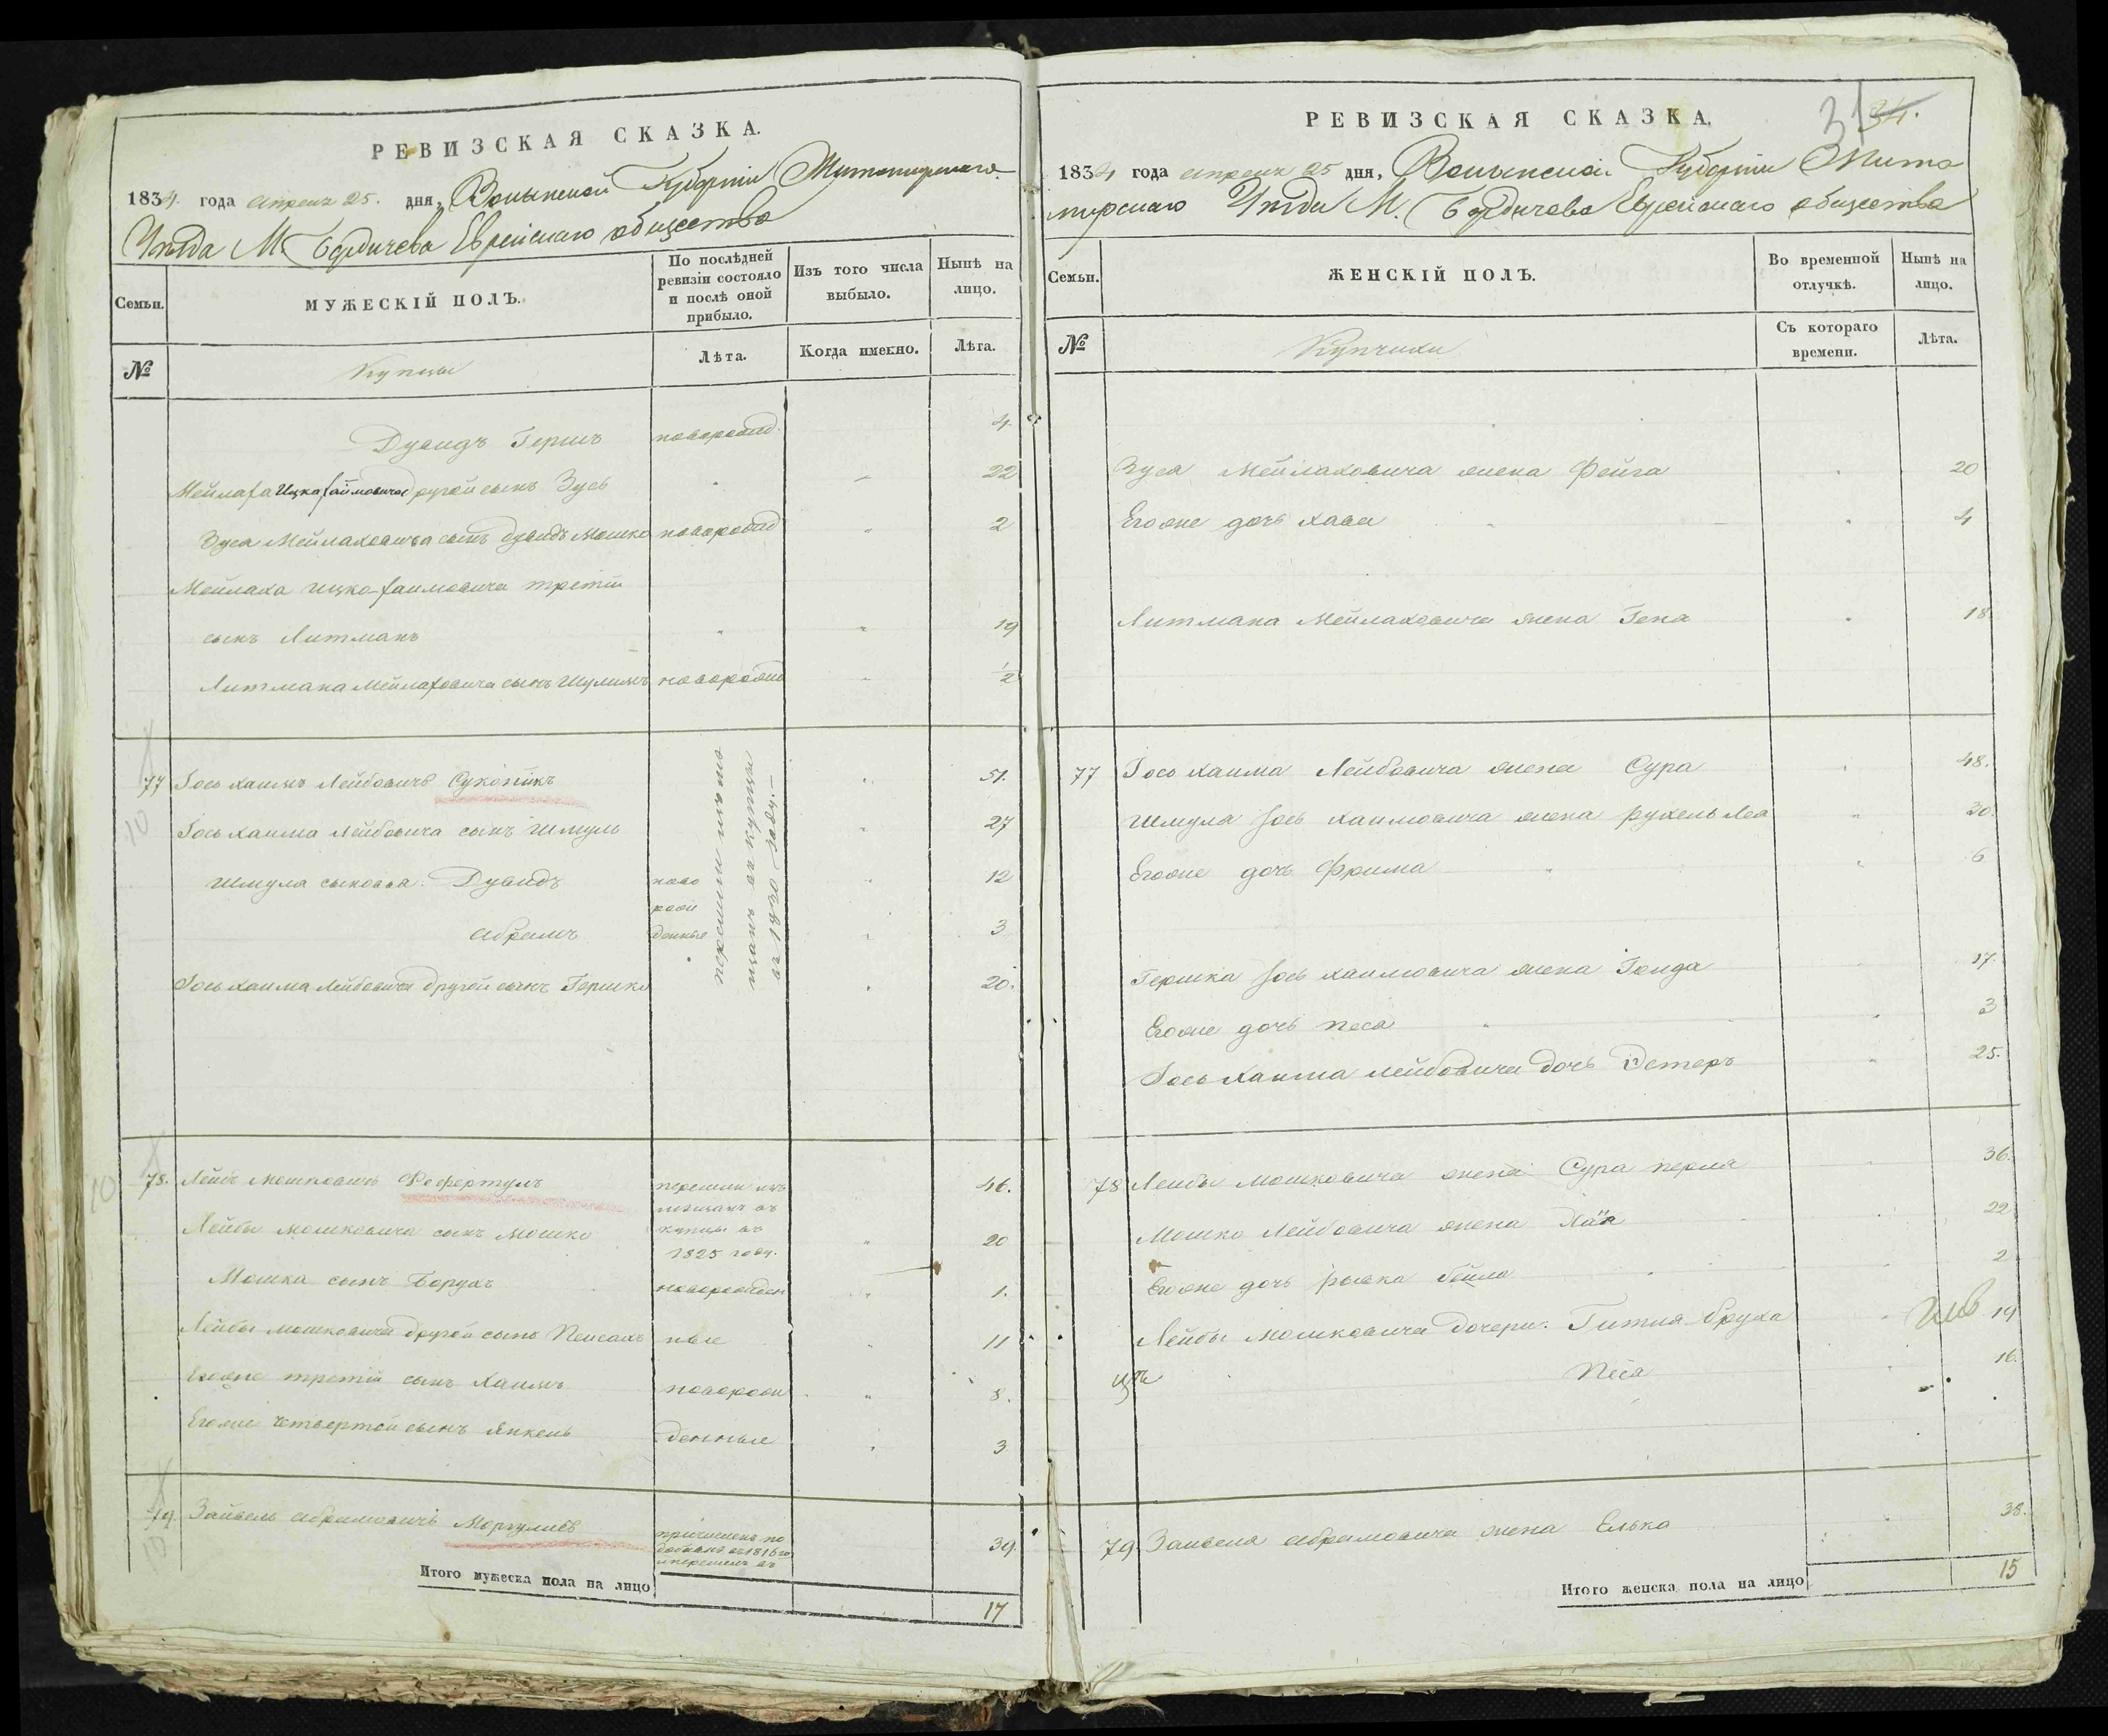 РЕВИЗСКАЯ СКАЗКА.
1834 года апреля 25. дня, Волынской Губерніи Житомирскаго
Уѣзда М. Бердичева Еврейскаго общества
Семьи.
МУЖЕСКІЙ ПОЛЪ.
По послѣдней
ревизіи состояло
и послѣ оной
прибыло.
Изъ того числа
выбыло.
Нынѣ на
лицо.
№
Купцы
Лѣта.
Когда именно.
Лѣта.
Дувидъ Гершъ новорожд. 4.
Мейлаха Ицка Хаймовича другой сынъ Зусь 22
Зуса Мейлаховича сынъ Дувидъ Мошко новорожд 2
Мейлаха Ицко-Хаимовича третій
сынъ Литманъ 19
Литмана Мейлаховича сынъ Шулимъ новорожд 1/2
77 Іось Хаимъ Лейбовичъ Суконикъ 51.
10
Іось Хаима Лейбовича сынъ Шмуль 27
Шмула сыновья: Дувидъ ново 12
рож
Абрамъ денные 3
Іось Хаима Лейбовича другой сынъ Гершко 20.
перешли изъ мѣ
щанъ въ купцы
въ 1820 году.
78. Лейбъ Мошковичъ Фефертулъ перешли изъ 46.
10
мѣщанъ въ
Лейбы Мошковича сынъ Мошко купцы въ 20
1825 году.
Мошка сынъ Борухъ новорожден 1.
Лейбы Мошковича другой сынъ Пейсахъ ные 11
Егоже третій сынъ Хаимъ новорож 8.
Егоже четвертой сынъ Янкель денные 3
79. Зайвель Абрамовичъ Моргулисъ причисленъ по 39.
10
въ 1816 го
и перешелъ въ
Итого мужеска пола на лицо 17
РЕВИЗСКАЯ СКАЗКА.
31 34.
1834 года апреля 25 дня, Волынской Губерніи Жито
мирскаго Уѣзда М. Бердичева Еврейскаго общества
Семьи.
ЖЕНСКІЙ ПОЛЪ.
Во временной
отлучкѣ.
Нынѣ на
лицо.
№
Купчихи
Съ котораго
времени.
Лѣта.
Зуса Мейлаховича жена Фейга 20
Егоже дочь Хава 4
Литмана Мейлаховича жена Гена 18.
77 Іось Хаима Лейбовича жена Сура 48.
Шмула Іось Хаимовича жена Рухель Леа 30.
Егоже дочь Фрима 6
Гершка Іось Хаимовича жена 17.
Егоже дочь Песа 3
Іось Хаима Лейбовича дочь Эстеръ 25.
78 Лейбы Мошковича жена Сура Перля 36.
Мошко Лейбовича жена Хая 22
Егоже дочь Рывка Бейла 2
Лейбы Мошковича дочери: Гитля Бруха 19
Песя 16.
79. Зайвеля Абрамовича жена Елька 38.
Итого женска пола на лицо 15